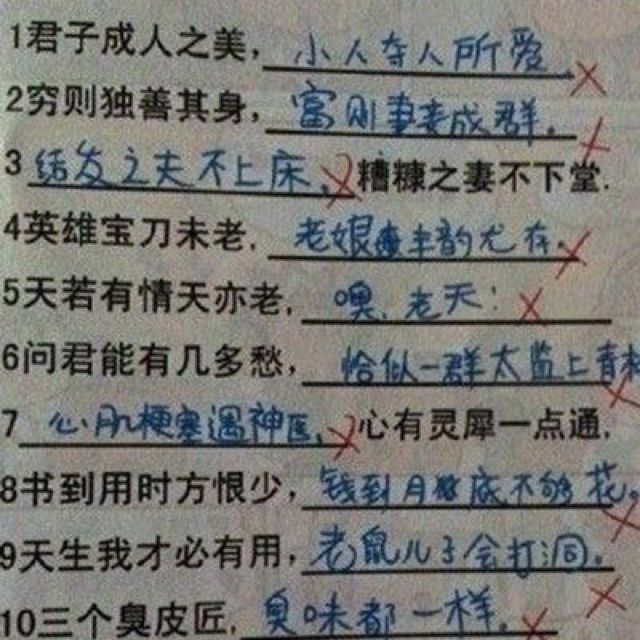 1君子成人之美，小人夺人所爱
2穷则独善其身，富则妻妾成群。
3结发之夫不上床，糟糠之妻不下堂.
4英雄宝刀未老，老娘风韵尤存。
5天若有情天亦老，噢，老天！
6问君能有几多愁，恰似一群太监上青楼
7心肌梗塞遇神医，心有灵犀一点通，
8书到用时方恨少，钱到月底不够花。
9天生我才必有用，老鼠儿子会打洞。
10三个臭皮匠，臭味都一样。